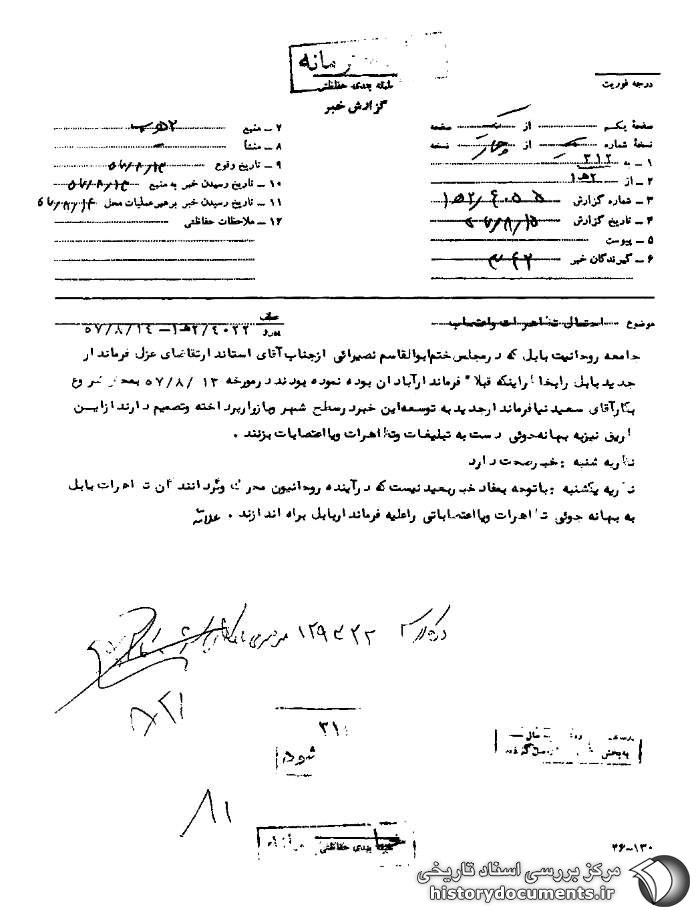 طبقه بندی حفاظتی
گزارش خبر
درجه فوریت
صفحهٔ یکم از یک صفحه
نسخهٔ شماره یک از چهار نسخه
۱ ـ به ۳۱۲
۲ ـ از ۲هـ۱
۳ ـ شماره گزارش
۴ ـ تاریخ گزارش ۵۷/۸/۱۵
۵ ـ پیوست
۶ ـ گیرندگان خبر
۷ ـ منبع
۸ ـ منشأ
۹ ـ تاریخ وقوع ۵۷/۸/۱۳
۱۰ ـ تاریخ رسیدن خبر به منبع ۵۷/۸/۱۳
۱۱ ـ تاریخ رسیدن خبر برهبر عملیات محل ۵۷/۸/۱۴
۱۲ ـ ملاحظات حفاظتی
موضوع احتمال تظاهرات واعتصاب
۴۰۲۲/۲هـ۱ـ ۵۷/۸/۱۴
جامعه روحانیت بابل که درمجلس ختم ابوالقاسم نصیرائی ازجناب آقای استاندارتقاضای عزل فرماندار
جدید بابل رابخاطراینکه قبلا" فرماندارآبادان بوده نموده بودند درمورخه ۵۷/۸/۱۳ بمحض شروع
بکارآقای سعید نیا فرماندارجدید به توسعه این خبردرسطح شهر وبازارپرداخته وتصمیم دارند ازاین
طریق نیزبه بهانه جوئی دست به تبلیغات وتظاهرات ویا اعتصابات بزنند .
نظریه شنبه : خبرصحت دارد
نظریه یکشنبه : باتوجه بمفاد خبربعید نیست که درآینده روحانیون محرک وگردانندگان تظاهرات بابل
به بهانه جوئی تظاهرات ویا اعتصاباتی راعلیه فرمانداربابل براه اندازند .
۸۲۱
۳۱۱
شود
۸۱
طبقه بندی حفاظتی
۲۶-۱۳۰
مرکز بررسی اسناد تاریخی
historydocuments.ir